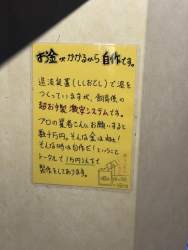 お金がかかるから自作です。
還流装置(ししおどし)で波を
つくっていますが、飼育係の
超お手製 激安システムです。
プロの業者さんにお願いすると
数千万円。そんな金はねぇ!
そんな時は自作だ!ということで
トータルで1万円以下で
製作をしております。